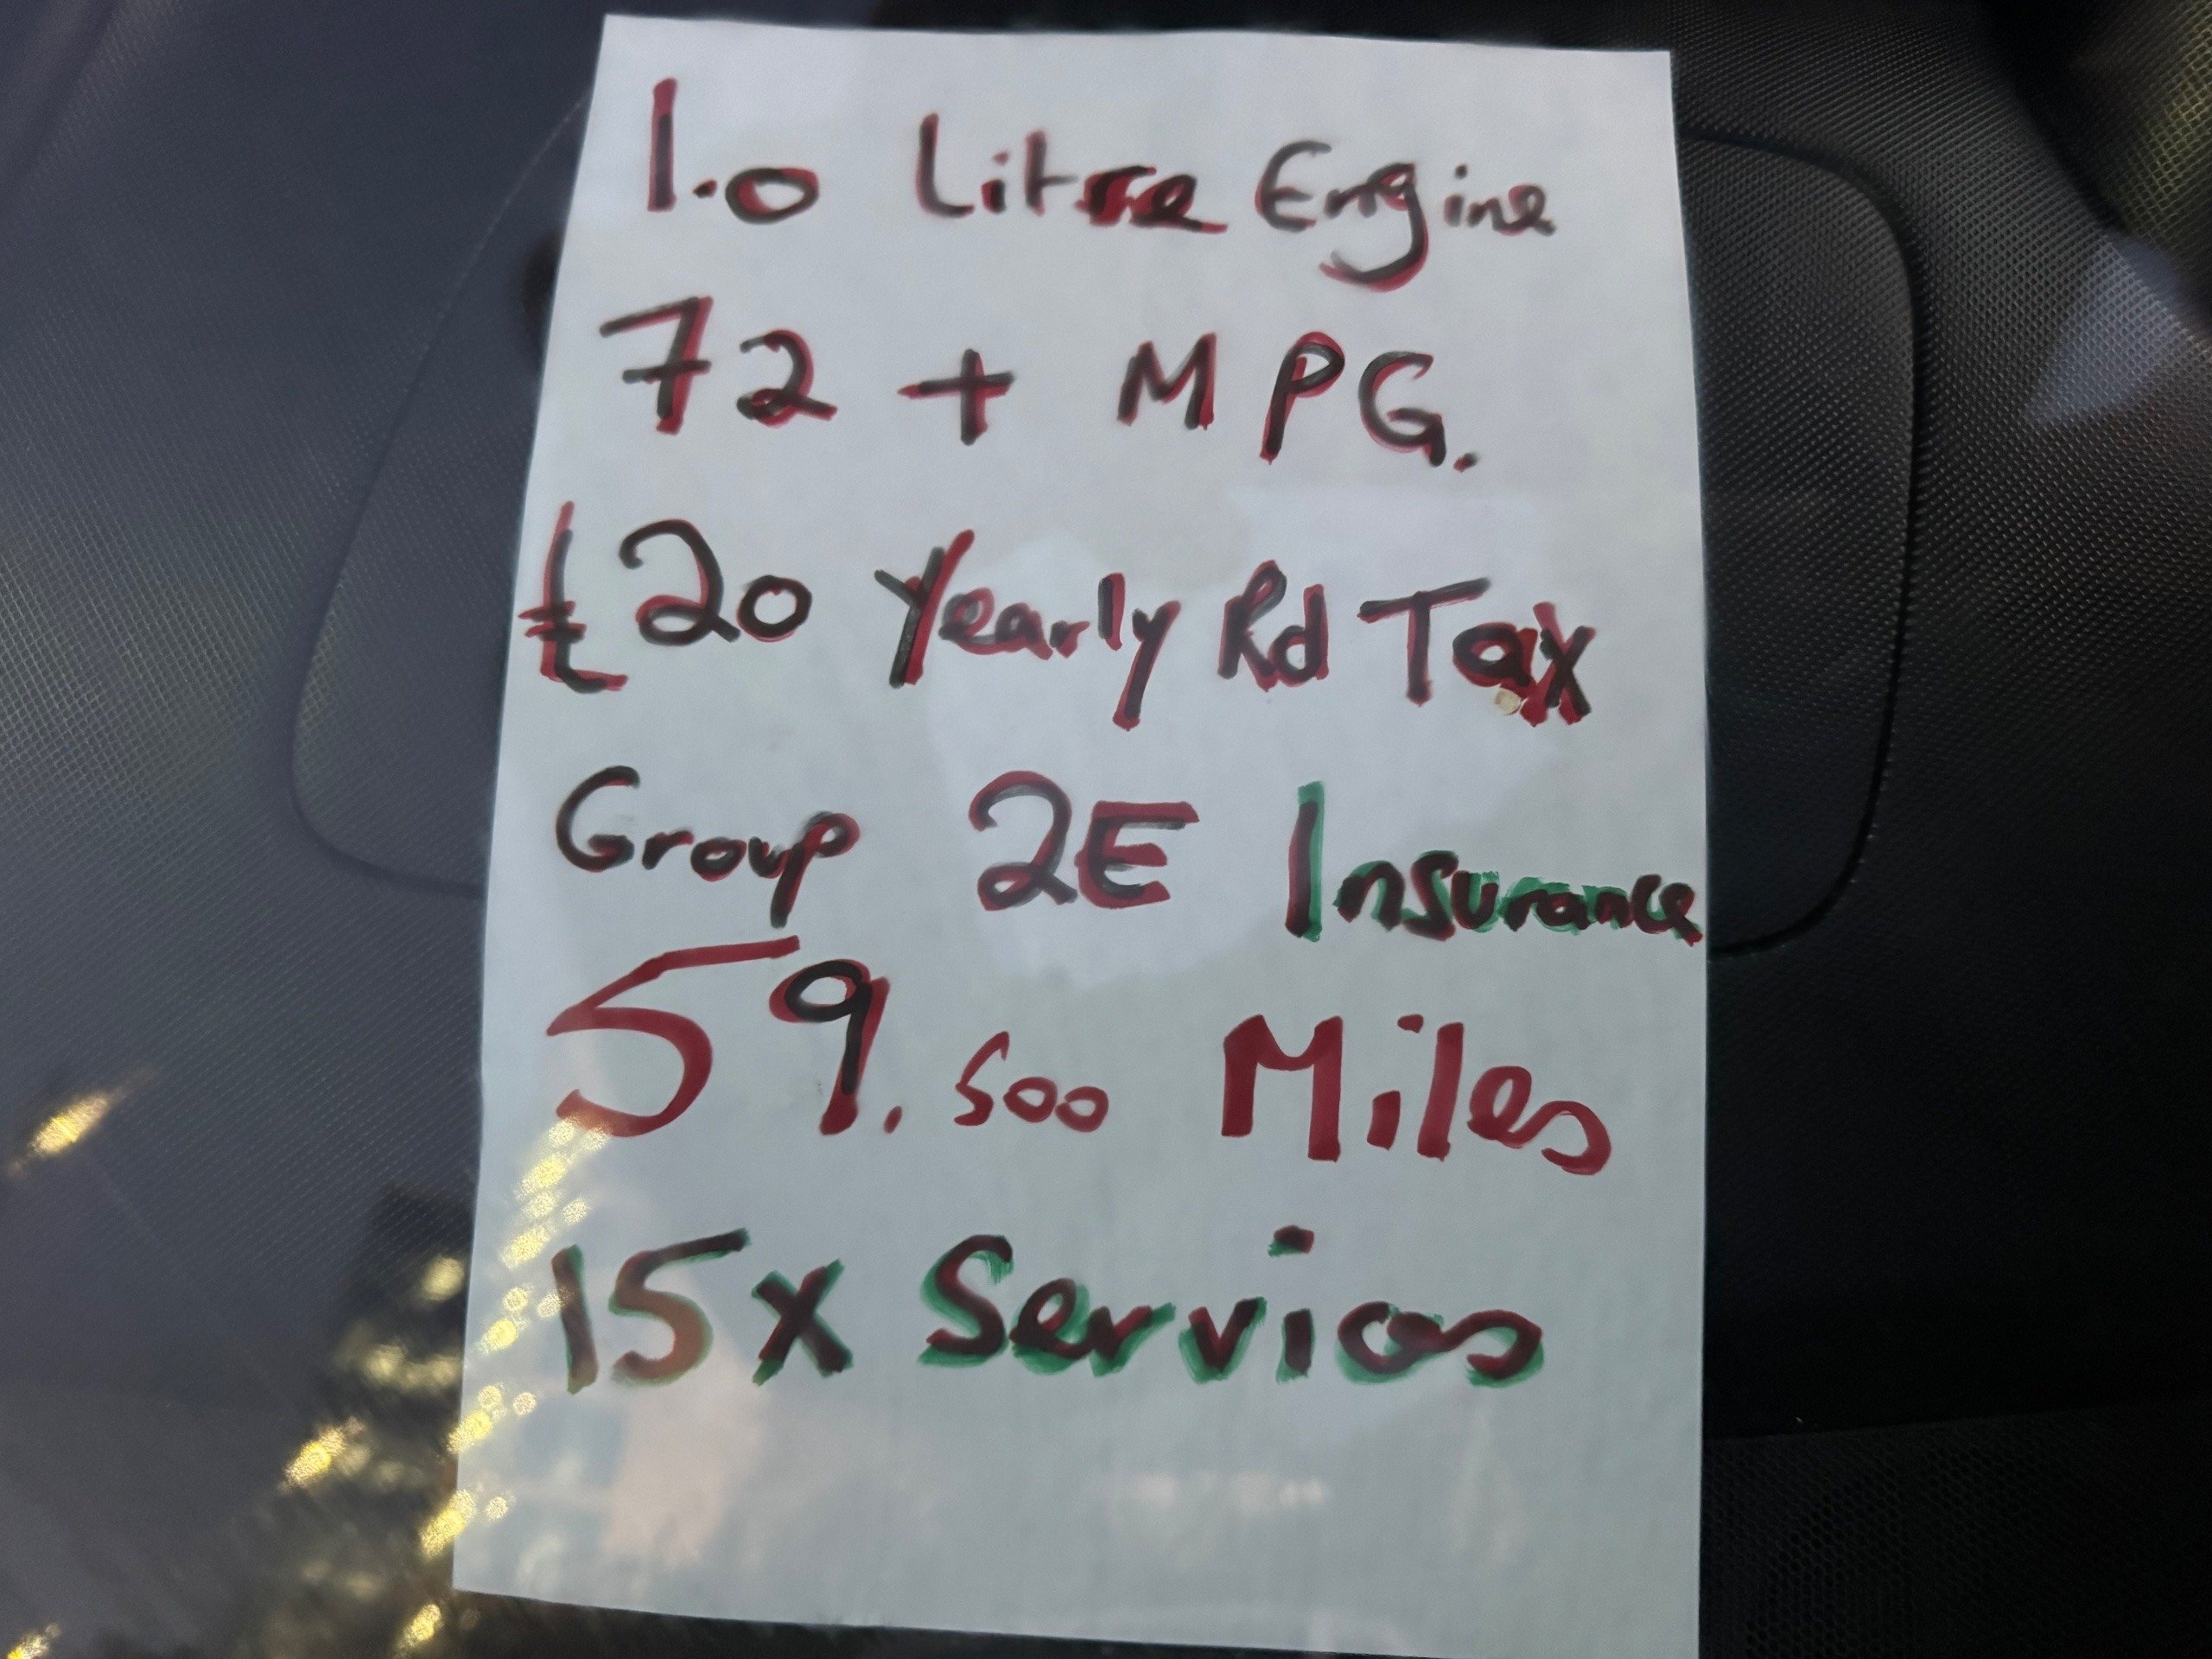 1.0 Litre Engine
72 + MPG.
£20 Yearly Rd Tax
Group 2E Insurance
59.500 Miles
15x Services